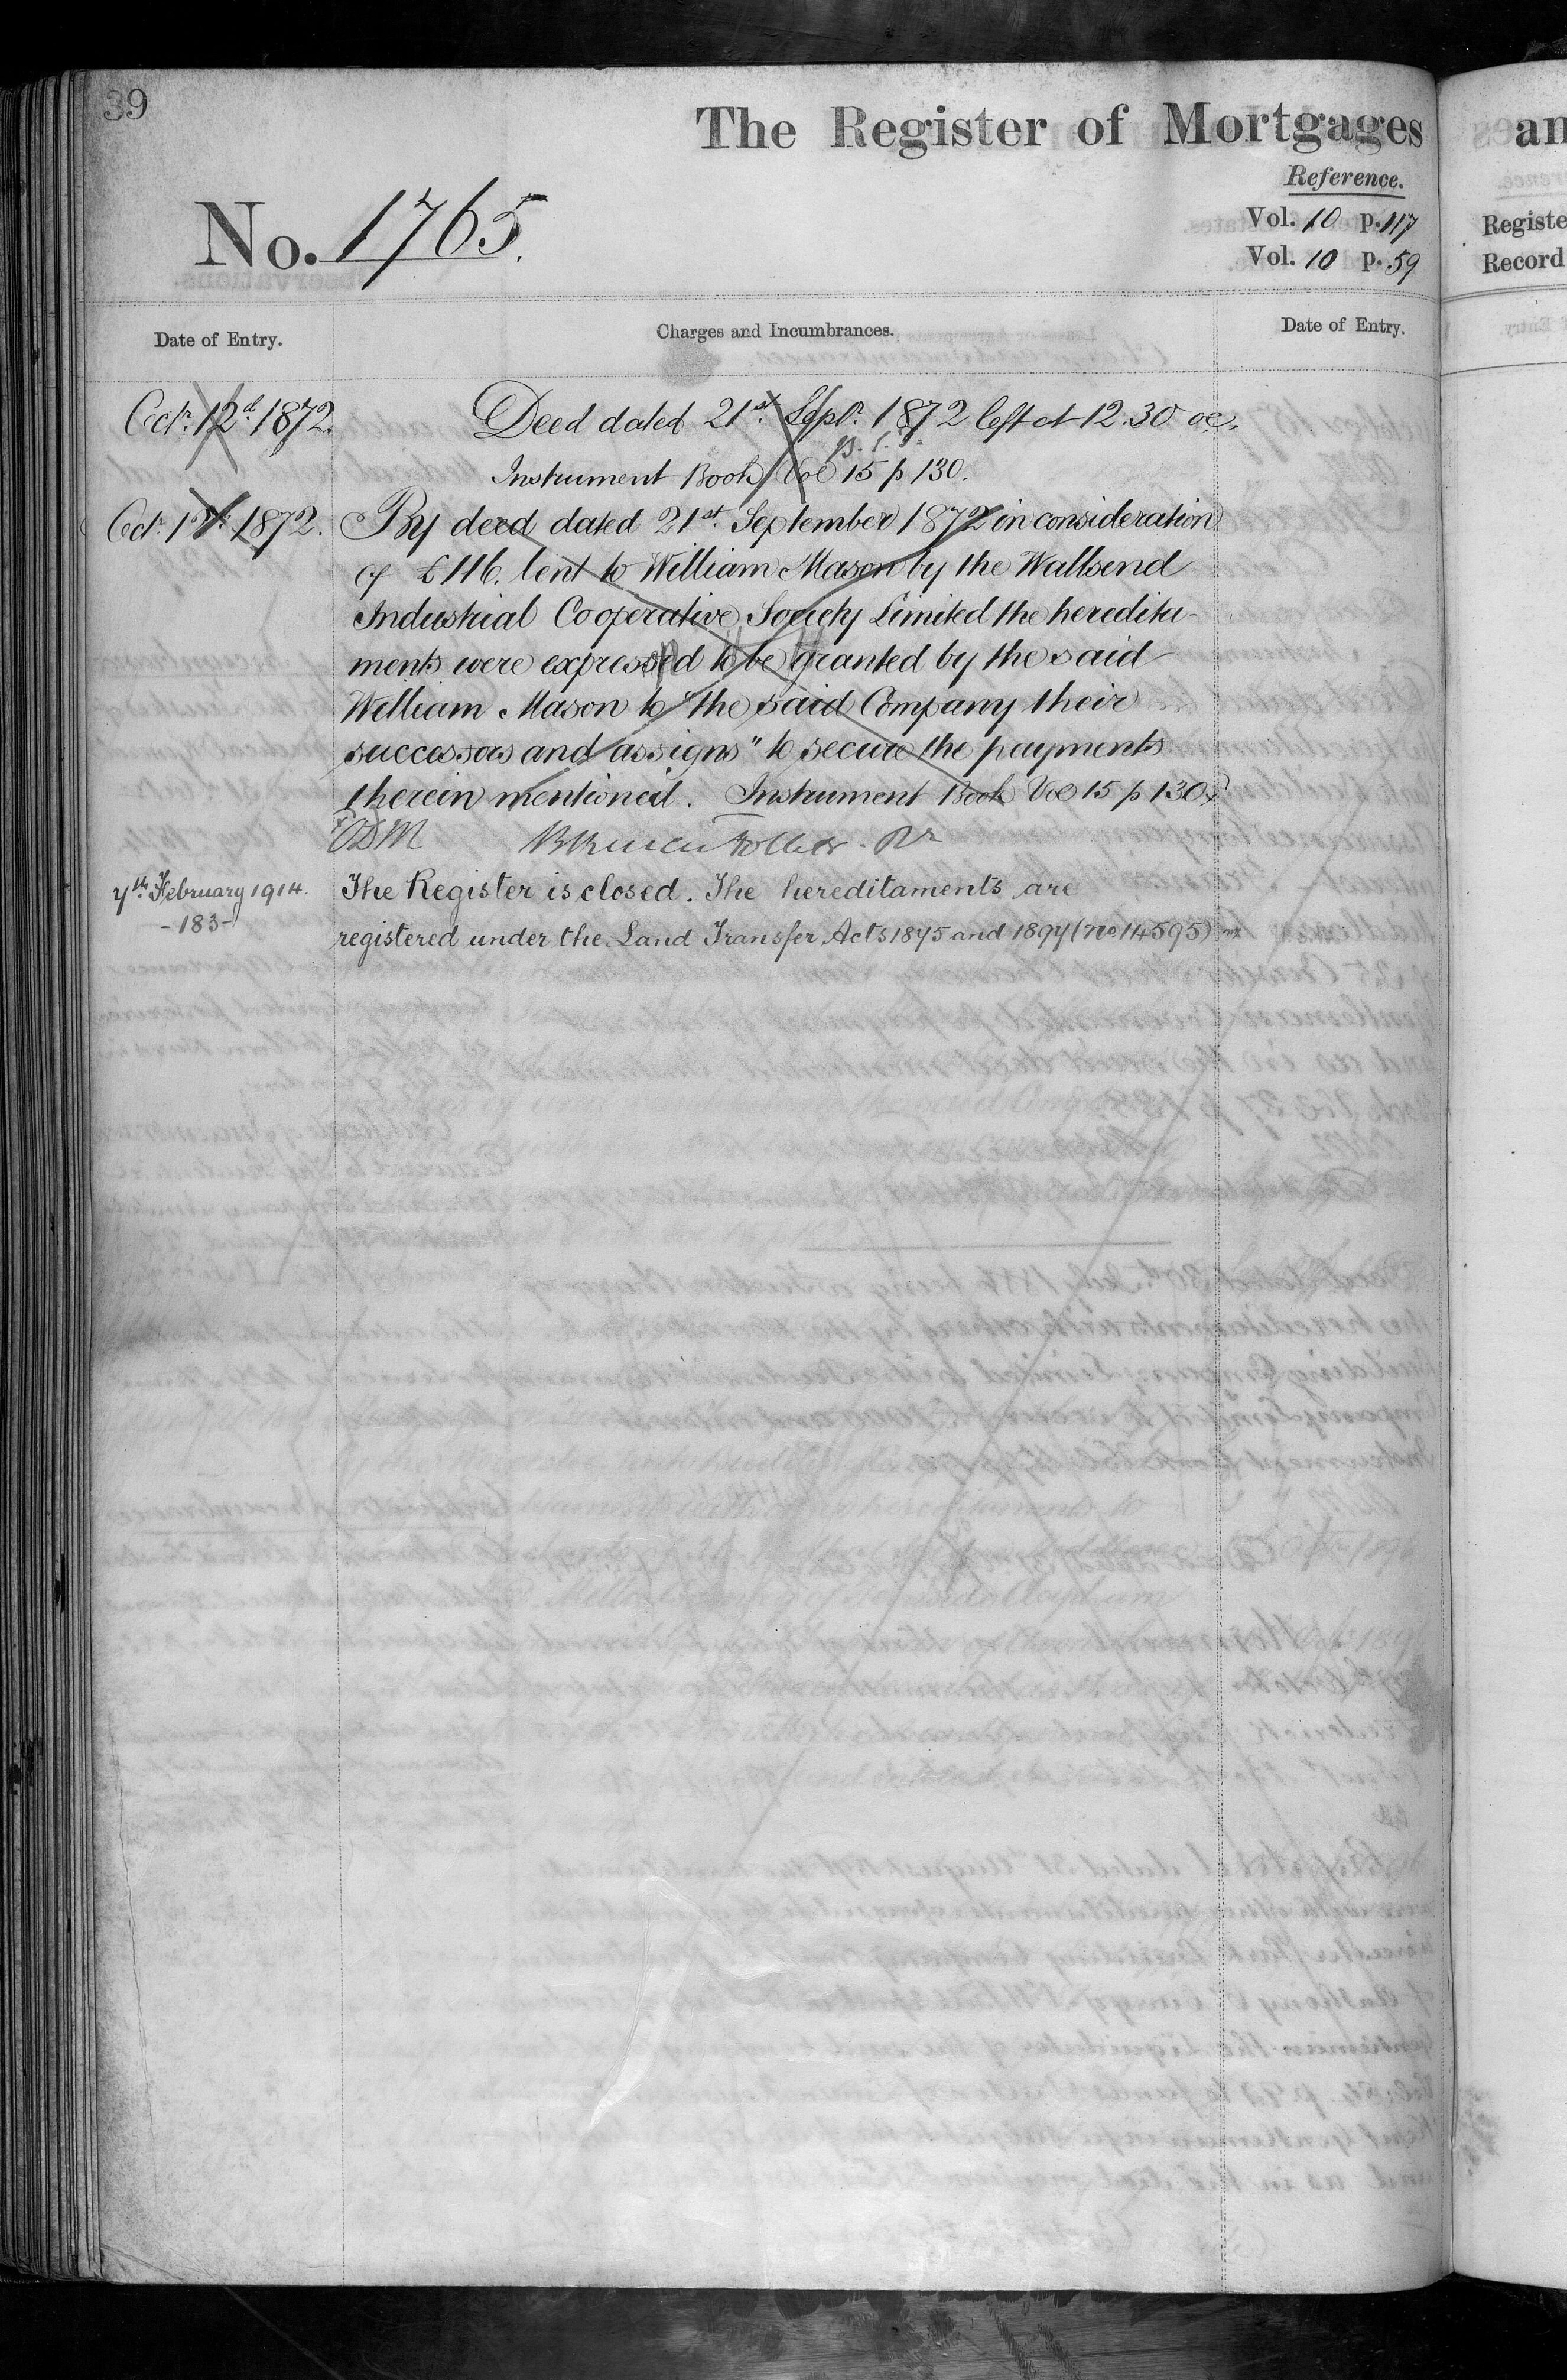 39
The Register of Mortgages
an
Reference.
No. 1765.
Vol. 10 p. 117
Registe
Vol. 10 p. 59
Record
Date of Entry.
Charges and Incumbrances.
Date of Entry.
Octr. 12d. 1872.
Deed dated 21st. Septr. 1872 left at 12.30 oc,
Instrument Book Vol 15 p 130.
Oct. 12. 1872.
By deed dated 21st. September 1872 in consideration
of £116. lent to William Mason by the Wallsend
Industrial Cooperative Society Limited the heredita-
ments were expressed to be granted by the said
William Mason to "the said Company their
successors and assigns" to secure the payments
therein mentioned. Instrument Book Vol 15 p 130
7th. February 1914.
The Register is closed. The hereditaments are
-183-
registered under the Land Transfer Acts 1875 and 1897 (No. 14595)